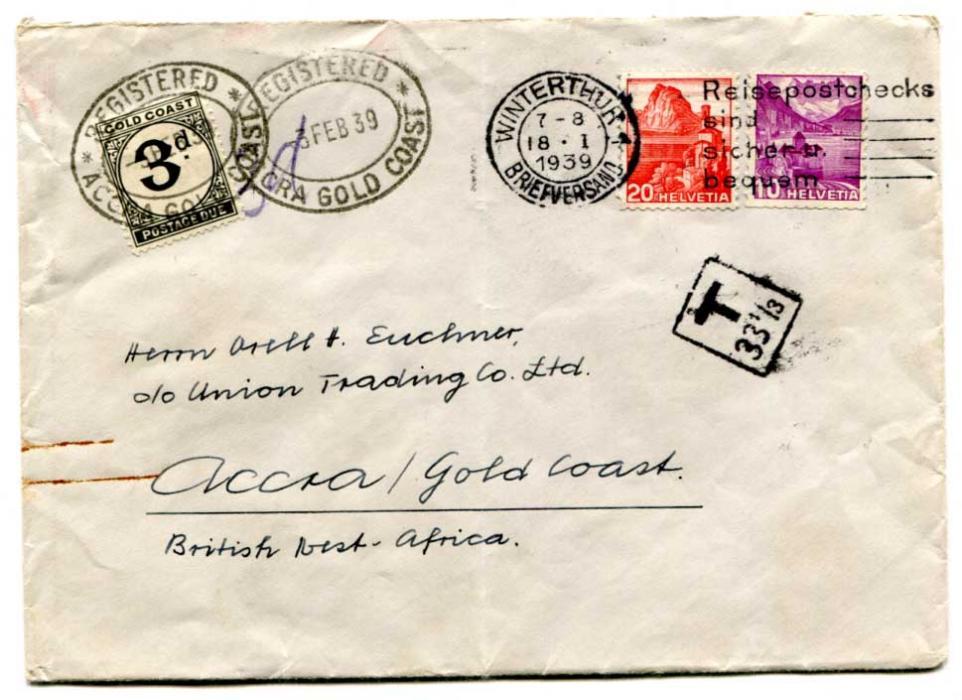 REGISTERED
ACCRA GOLD COAST
GOLD COAST
3d
POSTAGE DUE
REGISTERED
3 FEB 39
ACCRA GOLD COAST
WINTERTHUR 1
7-8
18.I
1939
BRIEFVERSAND
20 HELVETIA
10 HELVETIA
Reisepostchecks
sind
sicher u.
bequem
T
33 1/3
Herrn Orell H. Euchner,
c/o Union Trading Co. Ltd.
Accra / Gold Coast.
British West-Africa.